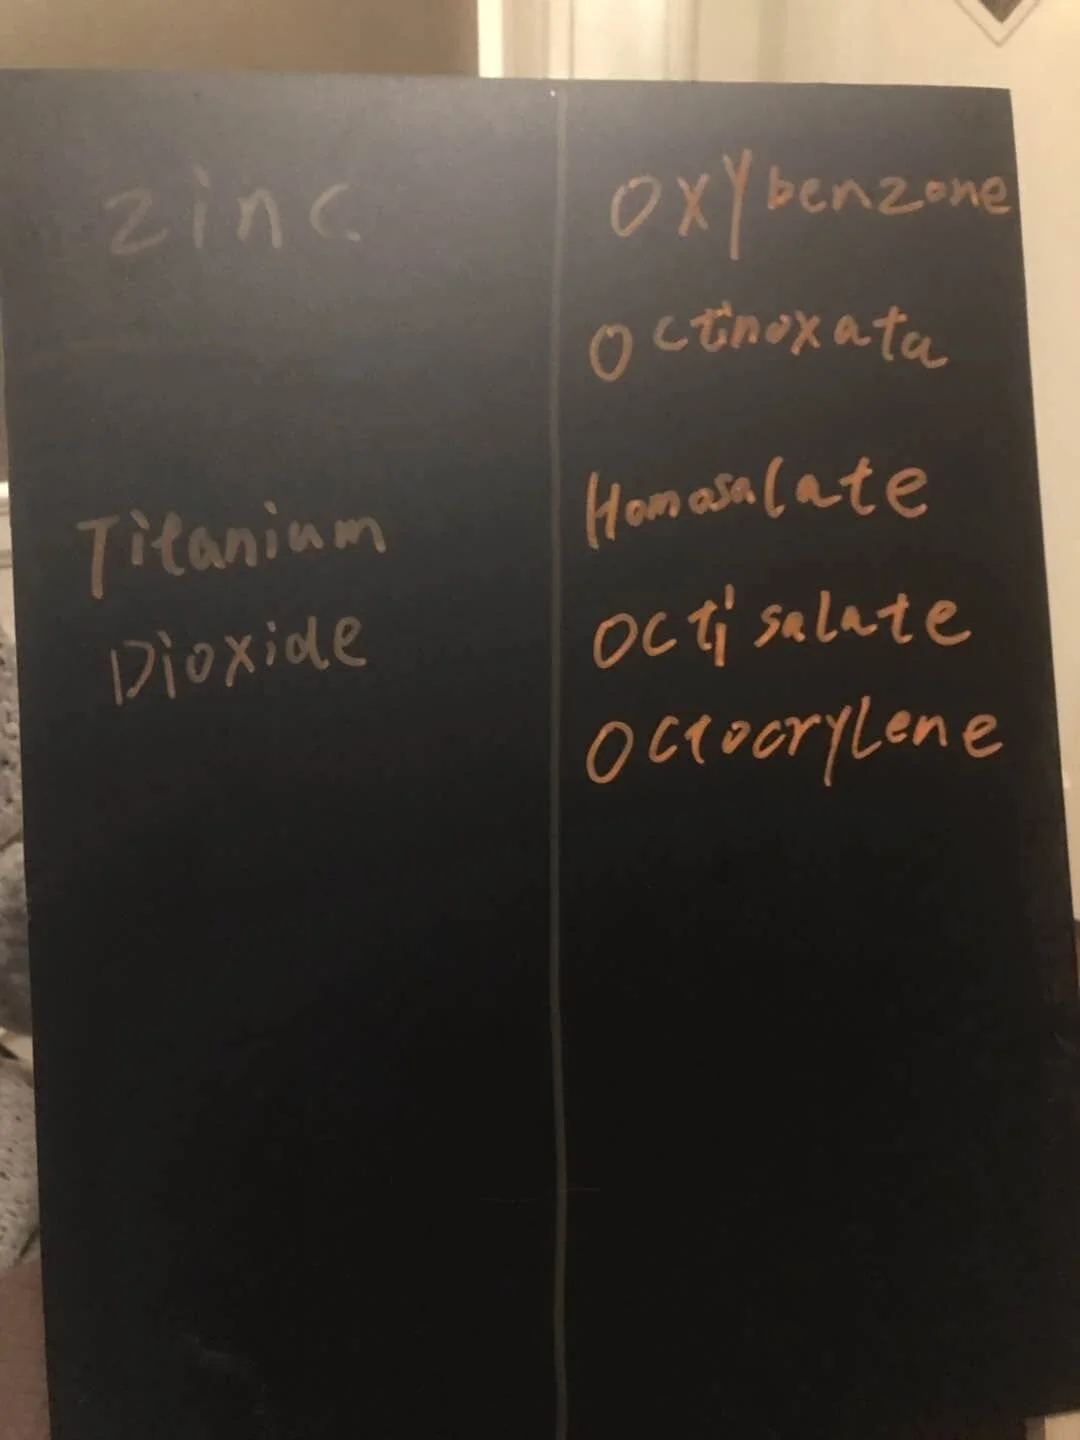 zinc
Titanium
Dioxide
Oxybenzone
Octinoxata
Homosalate
Octisalate
Octocrylene